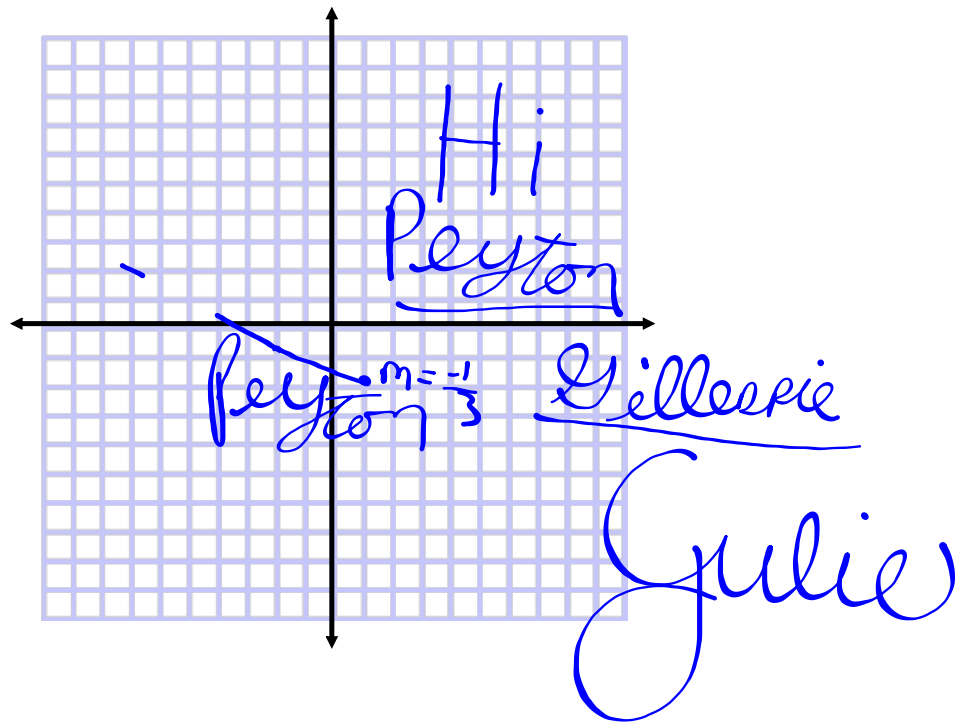 Hi
Peyton
Peyton
m = -1/3
Gillespie
Julie